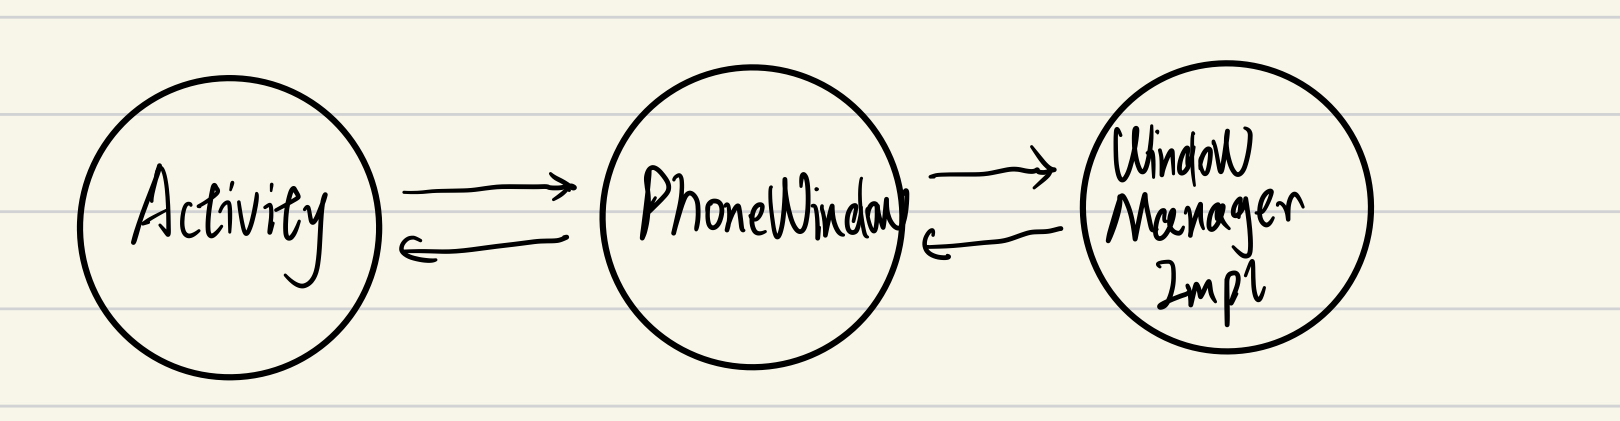 Activity
PhoneWindow
Window
Manager
Impl